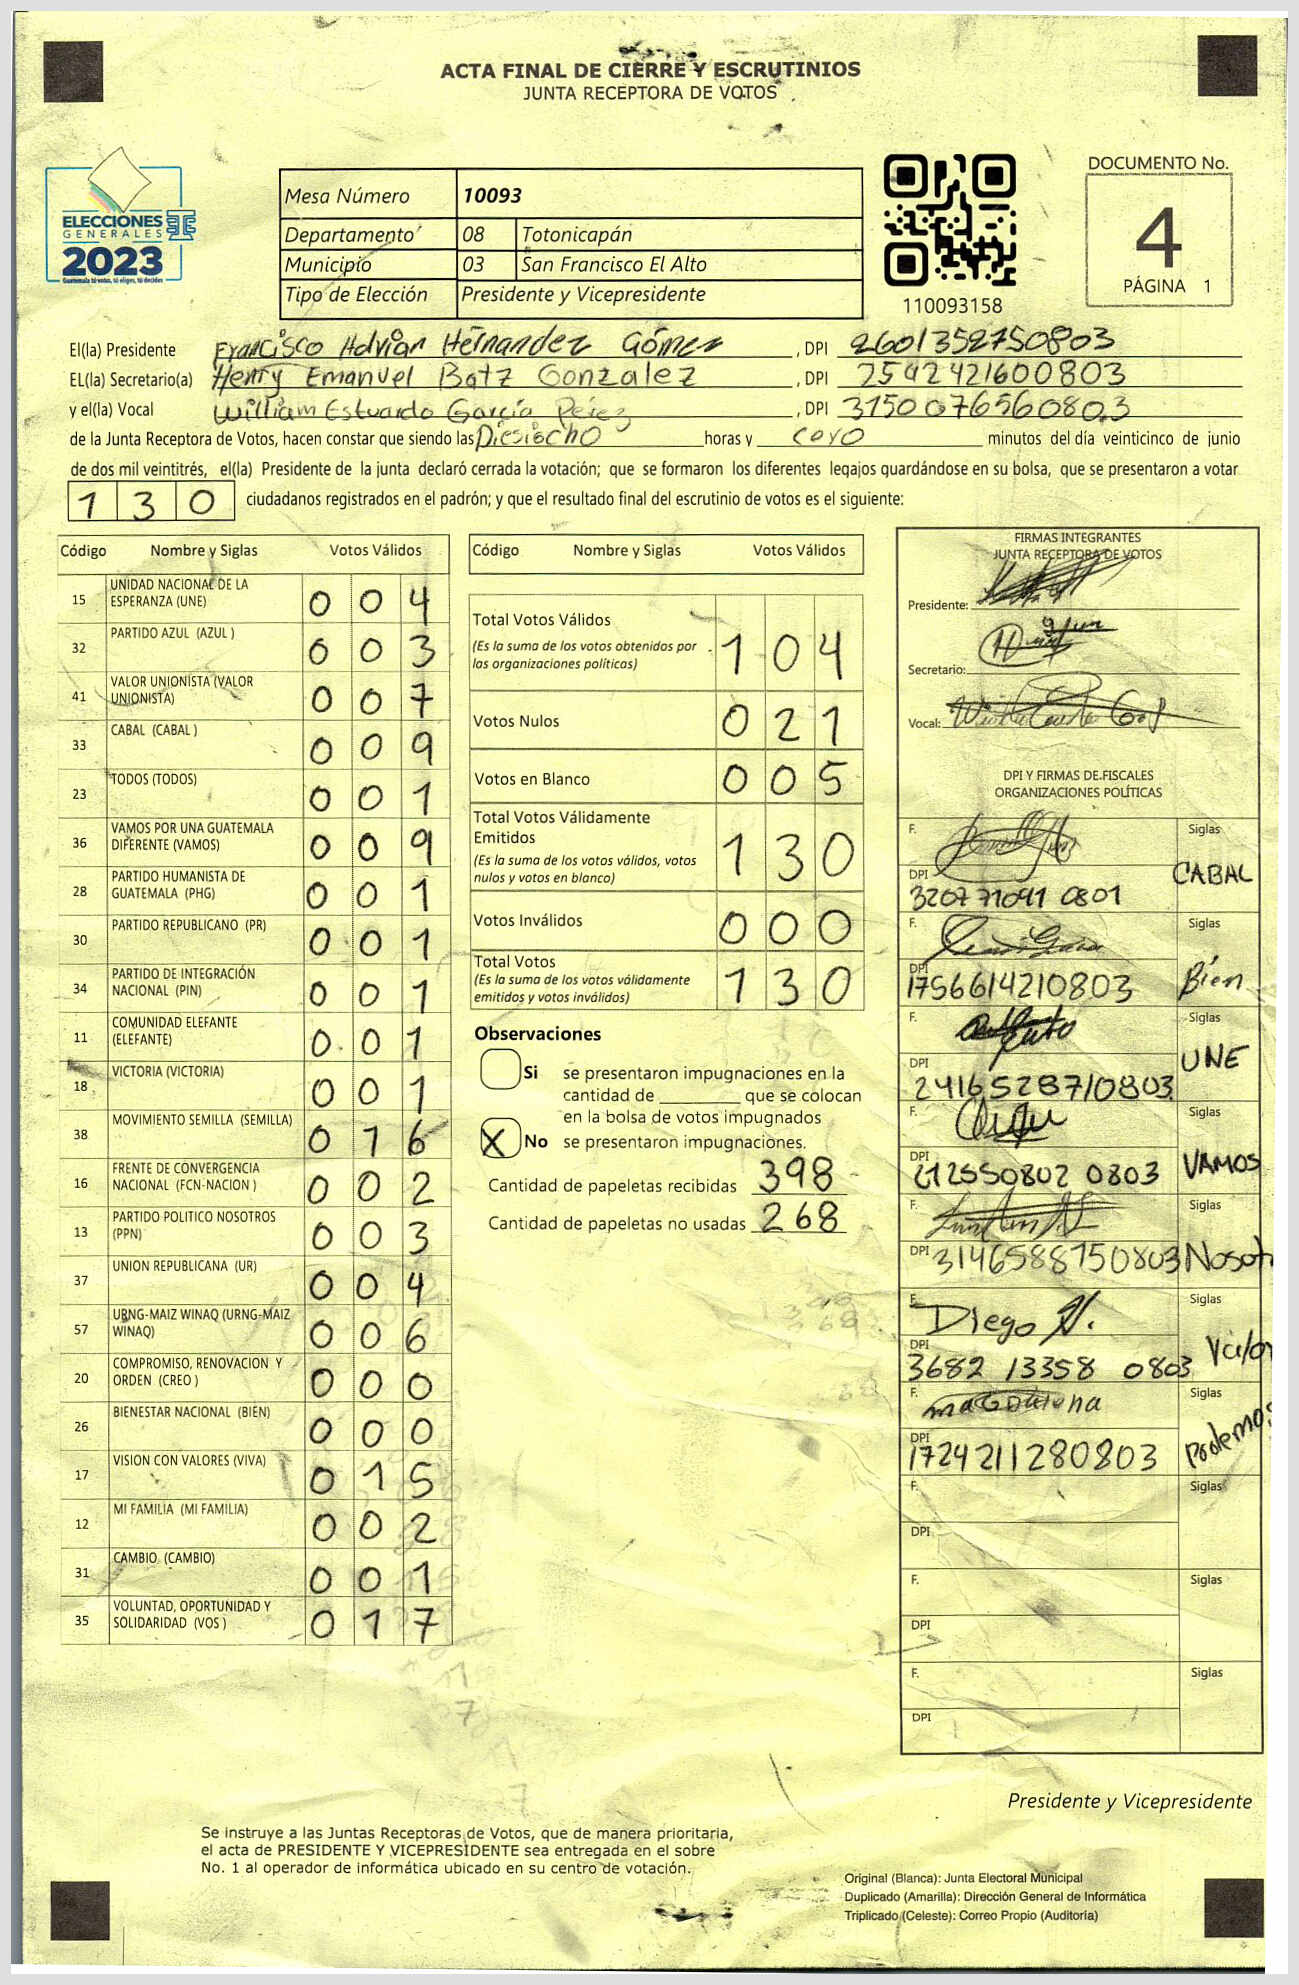 ACTA FINAL DE CIERRE Y ESCRUTINIOS
JUNTA RECEPTORA DE VOTOS
ELECCIONES
GENERALES
2023
Guatemala tú votas, tú eliges, tú decides
Mesa Número 10093
Departamento 08 Totonicapán
Municipio 03 San Francisco El Alto
Tipo de Elección Presidente y Vicepresidente
110093158
DOCUMENTO No.
4
PÁGINA 1
El(la) Presidente Francisco Advian Hérnandez Gómez , DPI 2601352750803
EL(la) Secretario(a) Henry Emanuel Batz Gonzalez , DPI 2542421600803
y el(la) Vocal William Estuardo García Pérez , DPI 3150076560803
de la Junta Receptora de Votos, hacen constar que siendo las Diesiocho horas y cero minutos del día veinticinco de junio
de dos mil veintitrés, el(la) Presidente de la junta declaró cerrada la votación; que se formaron los diferentes legajos guardándose en su bolsa, que se presentaron a votar
130 ciudadanos registrados en el padrón; y que el resultado final del escrutinio de votos es el siguiente:
Código Nombre y Siglas Votos Válidos
15 UNIDAD NACIONAL DE LA ESPERANZA (UNE) 004
32 PARTIDO AZUL (AZUL ) 003
41 VALOR UNIONISTA (VALOR UNIONISTA) 007
33 CABAL (CABAL ) 009
23 TODOS (TODOS) 001
36 VAMOS POR UNA GUATEMALA DIFERENTE (VAMOS) 009
28 PARTIDO HUMANISTA DE GUATEMALA (PHG) 001
30 PARTIDO REPUBLICANO (PR) 001
34 PARTIDO DE INTEGRACIÓN NACIONAL (PIN) 001
11 COMUNIDAD ELEFANTE (ELEFANTE) 001
18 VICTORIA (VICTORIA) 001
38 MOVIMIENTO SEMILLA (SEMILLA) 016
16 FRENTE DE CONVERGENCIA NACIONAL (FCN-NACION ) 002
13 PARTIDO POLITICO NOSOTROS (PPN) 003
37 UNION REPUBLICANA (UR) 004
57 URNG-MAIZ WINAQ (URNG-MAIZ WINAQ) 006
20 COMPROMISO, RENOVACION Y ORDEN (CREO ) 000
26 BIENESTAR NACIONAL (BIEN) 000
17 VISION CON VALORES (VIVA) 015
12 MI FAMILIA (MI FAMILIA) 002
31 CAMBIO (CAMBIO) 001
35 VOLUNTAD, OPORTUNIDAD Y SOLIDARIDAD (VOS ) 017
Código Nombre y Siglas Votos Válidos
Total Votos Válidos 104
(Es la suma de los votos obtenidos por
las organizaciones políticas)
Votos Nulos 021
Votos en Blanco 005
Total Votos Válidamente
Emitidos 130
(Es la suma de los votos válidos, votos
nulos y votos en blanco)
Votos Inválidos 000
Total Votos 130
(Es la suma de los votos válidamente
emitidos y votos inválidos)
Observaciones
Si se presentaron impugnaciones en la
cantidad de ________ que se colocan
en la bolsa de votos impugnados
X No se presentaron impugnaciones.
Cantidad de papeletas recibidas 398
Cantidad de papeletas no usadas 268
FIRMAS INTEGRANTES
JUNTA RECEPTORA DE VOTOS
Presidente:
Secretario:
Vocal:
DPI Y FIRMAS DE FISCALES
ORGANIZACIONES POLÍTICAS
F. Siglas
DPI 3207 71041 0801 CABAL
F. Siglas
DPI 1756614210803 Bien
F. Siglas
DPI 2416528710803 UNE
F. Siglas
DPI 212550802 0803 VAMOS
F. Siglas
DPI 3146588750803 Nosot
F. Diego H. Siglas
DPI 3682 13358 0803 Valor
F. magdalena Siglas
DPI 1724211280803 Podemos
F. Siglas
DPI
F. Siglas
DPI
F. Siglas
DPI
Presidente y Vicepresidente
Se instruye a las Juntas Receptoras de Votos, que de manera prioritaria,
el acta de PRESIDENTE Y VICEPRESIDENTE sea entregada en el sobre
No. 1 al operador de informática ubicado en su centro de votación.
Original (Blanca): Junta Electoral Municipal
Duplicado (Amarilla): Dirección General de Informática
Triplicado (Celeste): Correo Propio (Auditoría)